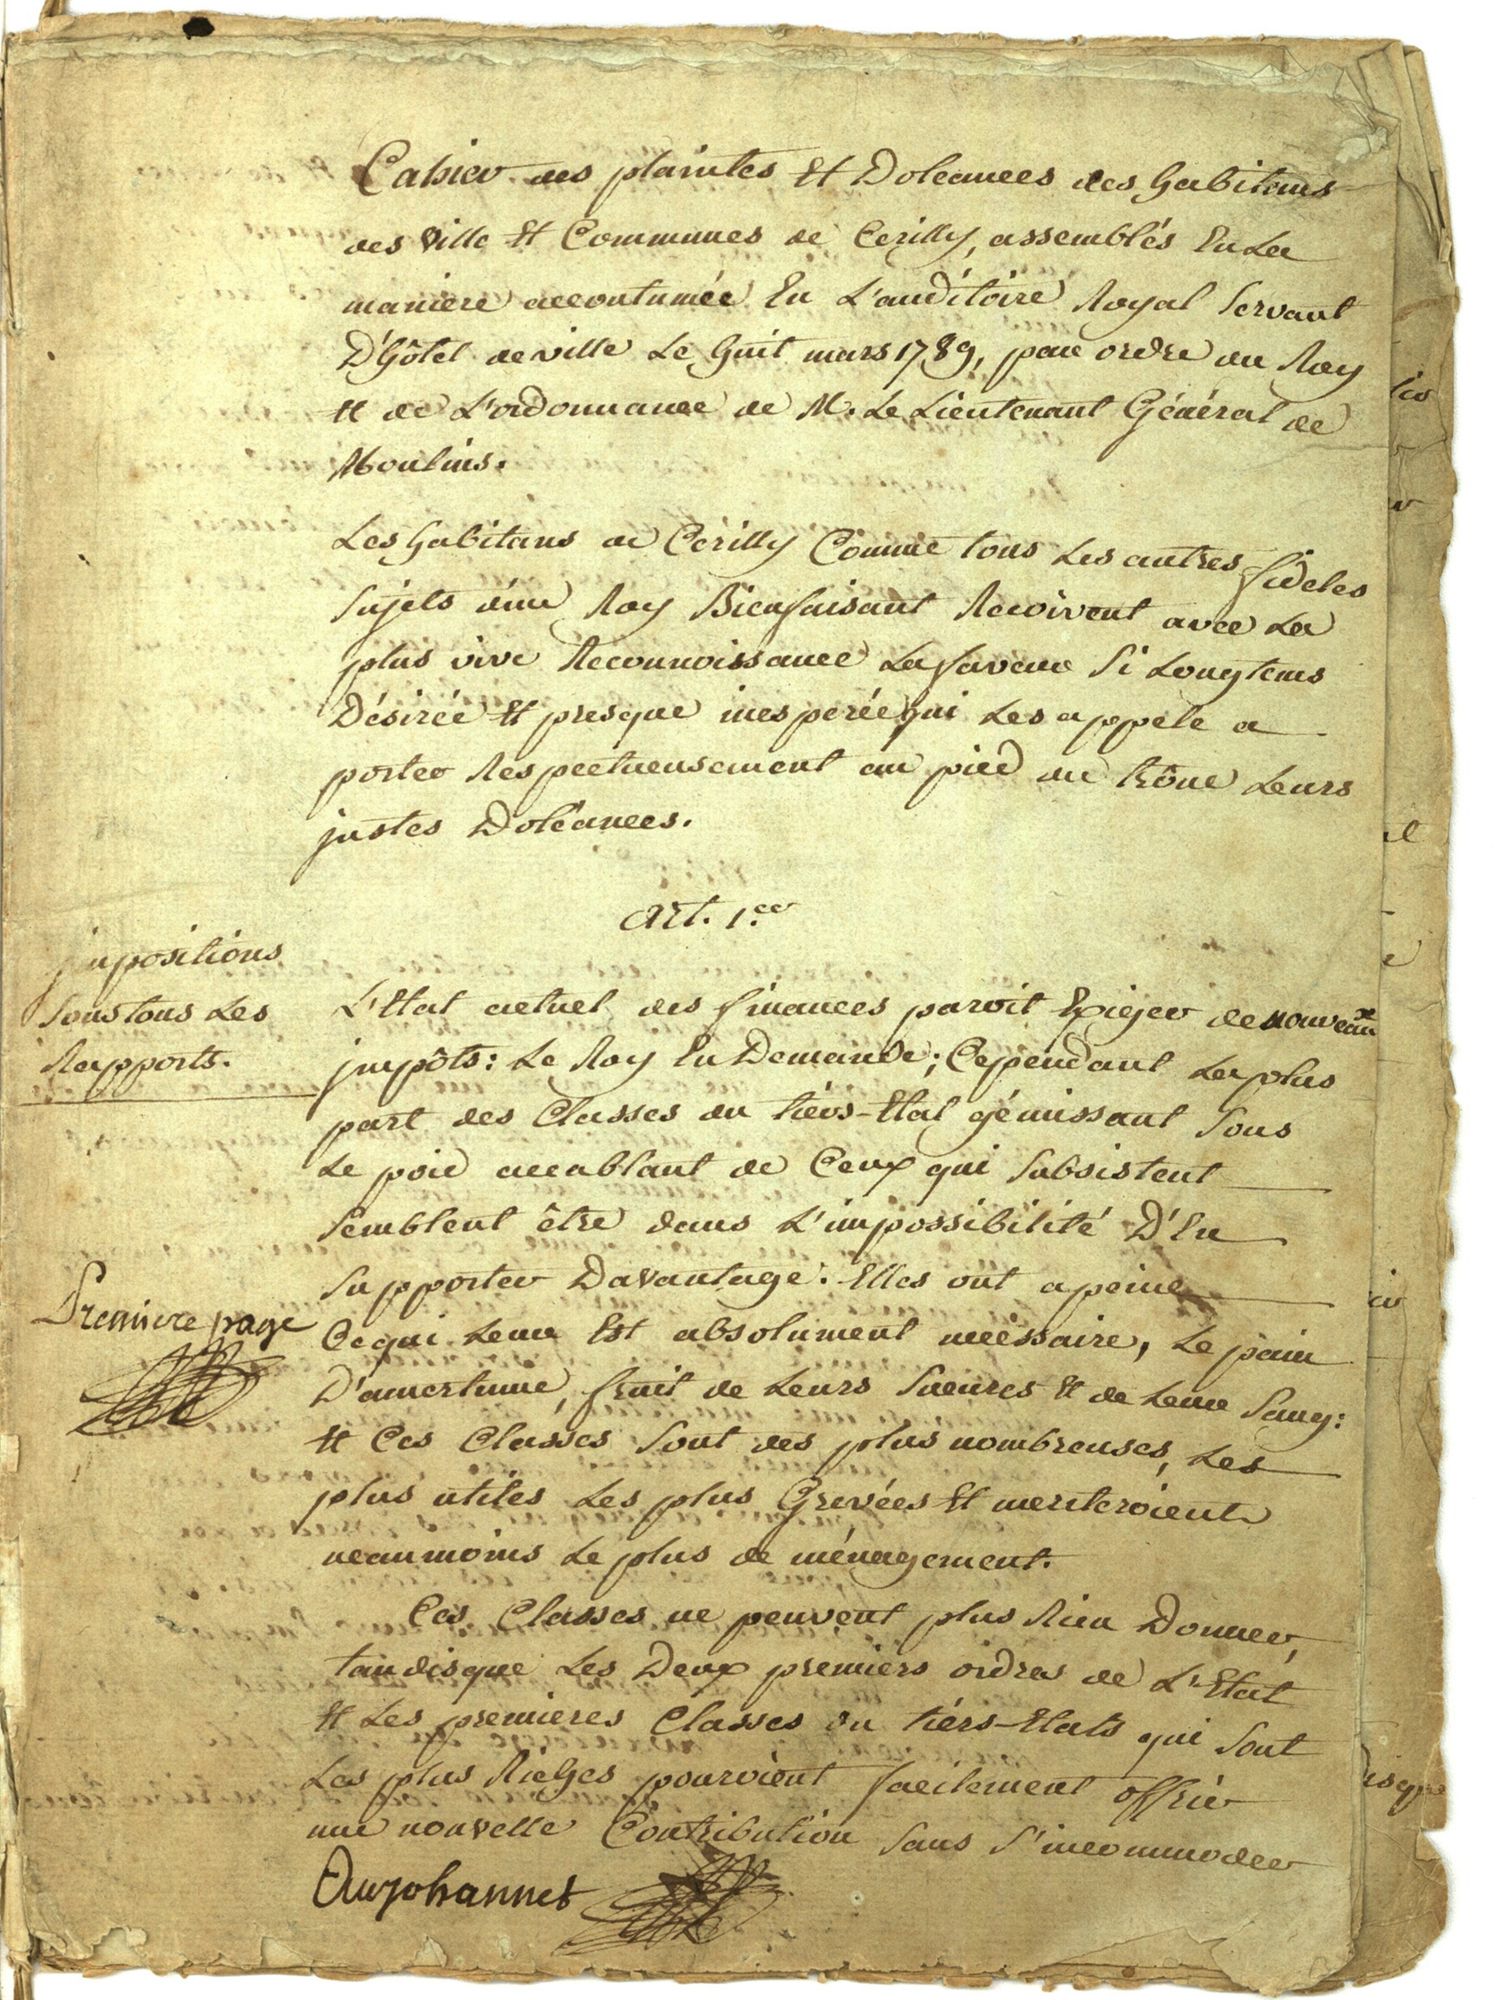 Cahier des plaintes Et Doléances des habitans
des ville Et Communes de Cerilly, assemblés En La
maniere accoutumée En L'auditoire Royal Servant
D'hôtel de ville Le huit mars 1789, par ordre du Roy
Et de L'ordonnance de M. Le Lieutenant Général de
Moulins.
Les habitans de Cérilly Comme tous Les autres fideles
Sujets d'un Roy Bienfaisant Recoivent avec La
plus vive Reconnoissance La faveur Si Longtems
Désirée Et presque inesperée qui Les appele a
porter Respectueusement au pied du trône Leurs
justes Doléances.
Art. 1.er
impositions
Sous tous Les
Rapports.
L'Etat actuel des finances paroit Exiger de nouveaux
impôts: Le Roy En Demande; Cependant La plus
part des Classes du tiérs-Etat gémissant Sous
Le poid accablant de Ceux qui Subsistent
Semblent être dans L'impossibilité D'En
Supporter Davantage. Elles ont a peine
Ce qui Leur Est absolument nécéssaire, Le pain
D'amertume, fruit de Leurs Sueures Et de Leur Sang:
Et Ces Classes Sont des plus nombreuses, Les
plus utiles Les plus Grevées Et meriteroient
neanmoins Le plus de ménagement.
Premiere page
Ces Classes ne peuvent plus Rien Donner,
tandisque Les Deux premiers ordres de L'Etat
Et Les premieres Classes du tiérs-Etats qui Sont
Les plus Riches pourroient facilement offrir
une nouvelle Contribution Sans S'incommoder
Aujohannet